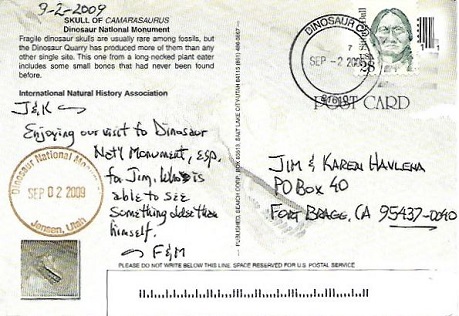 9-2-2009
SKULL OF CAMARASAURUS
Dinosaur National Monument
Fragile dinosaur skulls are usually rare among fossils, but
the Dinosaur Quarry has produced more of them than any
other single site. This one from a long-necked plant eater
includes some small bones that had never been found
before.
International Natural History Association
J&K
Enjoying our visit to Dinosaur
Nat'l Monument, esp.
for Jim. Who is
able to see
something older than
himself.
F&M
Dinosaur National Monument
SEP 02 2009
Jensen, Utah
PUBLISHED, SALT LAKE CITY, UTAH 84115 (801) 486-
DINOSAUR CO
SEP - 2 2009
81610
POST CARD
JIM & KAREN HAVLENA
PO BOX 40
FORT BRAGG, CA 95437-0040
PLEASE DO NOT WRITE BELOW THIS LINE. SPACE RESERVED FOR U.S. POSTAL SERVICE